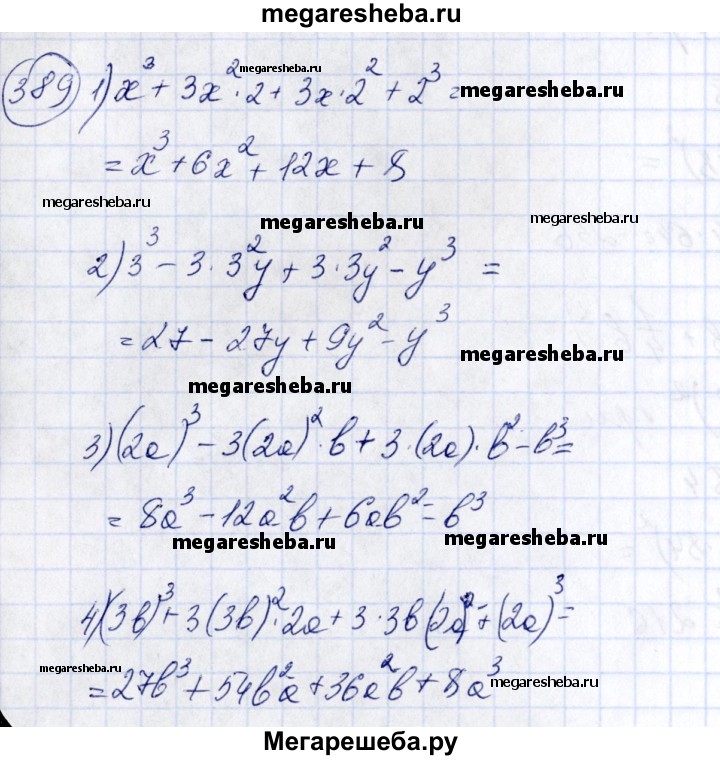 megaresheba.ru
389 1) x³ + 3x²·2 + 3x·2² + 2³ =
megaresheba.ru
megaresheba.ru
= x³ + 6x² + 12x + 8
megaresheba.ru
megaresheba.ru
megaresheba.ru
2) 3³ - 3·3²y + 3·3y² - y³ =
= 27 - 27y + 9y² - y³
megaresheba.ru
megaresheba.ru
3) (2a)³ - 3(2a)²·b + 3·(2a)·b² - b³ =
= 8a³ - 12a²b + 6ab² = b³
megaresheba.ru
megaresheba.ru
4) (3b)³ + 3(3b)²·2a + 3·3b(2a)² + (2a)³ =
megaresheba.ru
= 27b³ + 54b²a + 36a²b + 8a³
megaresheba.ru
Мегарешеба.ру